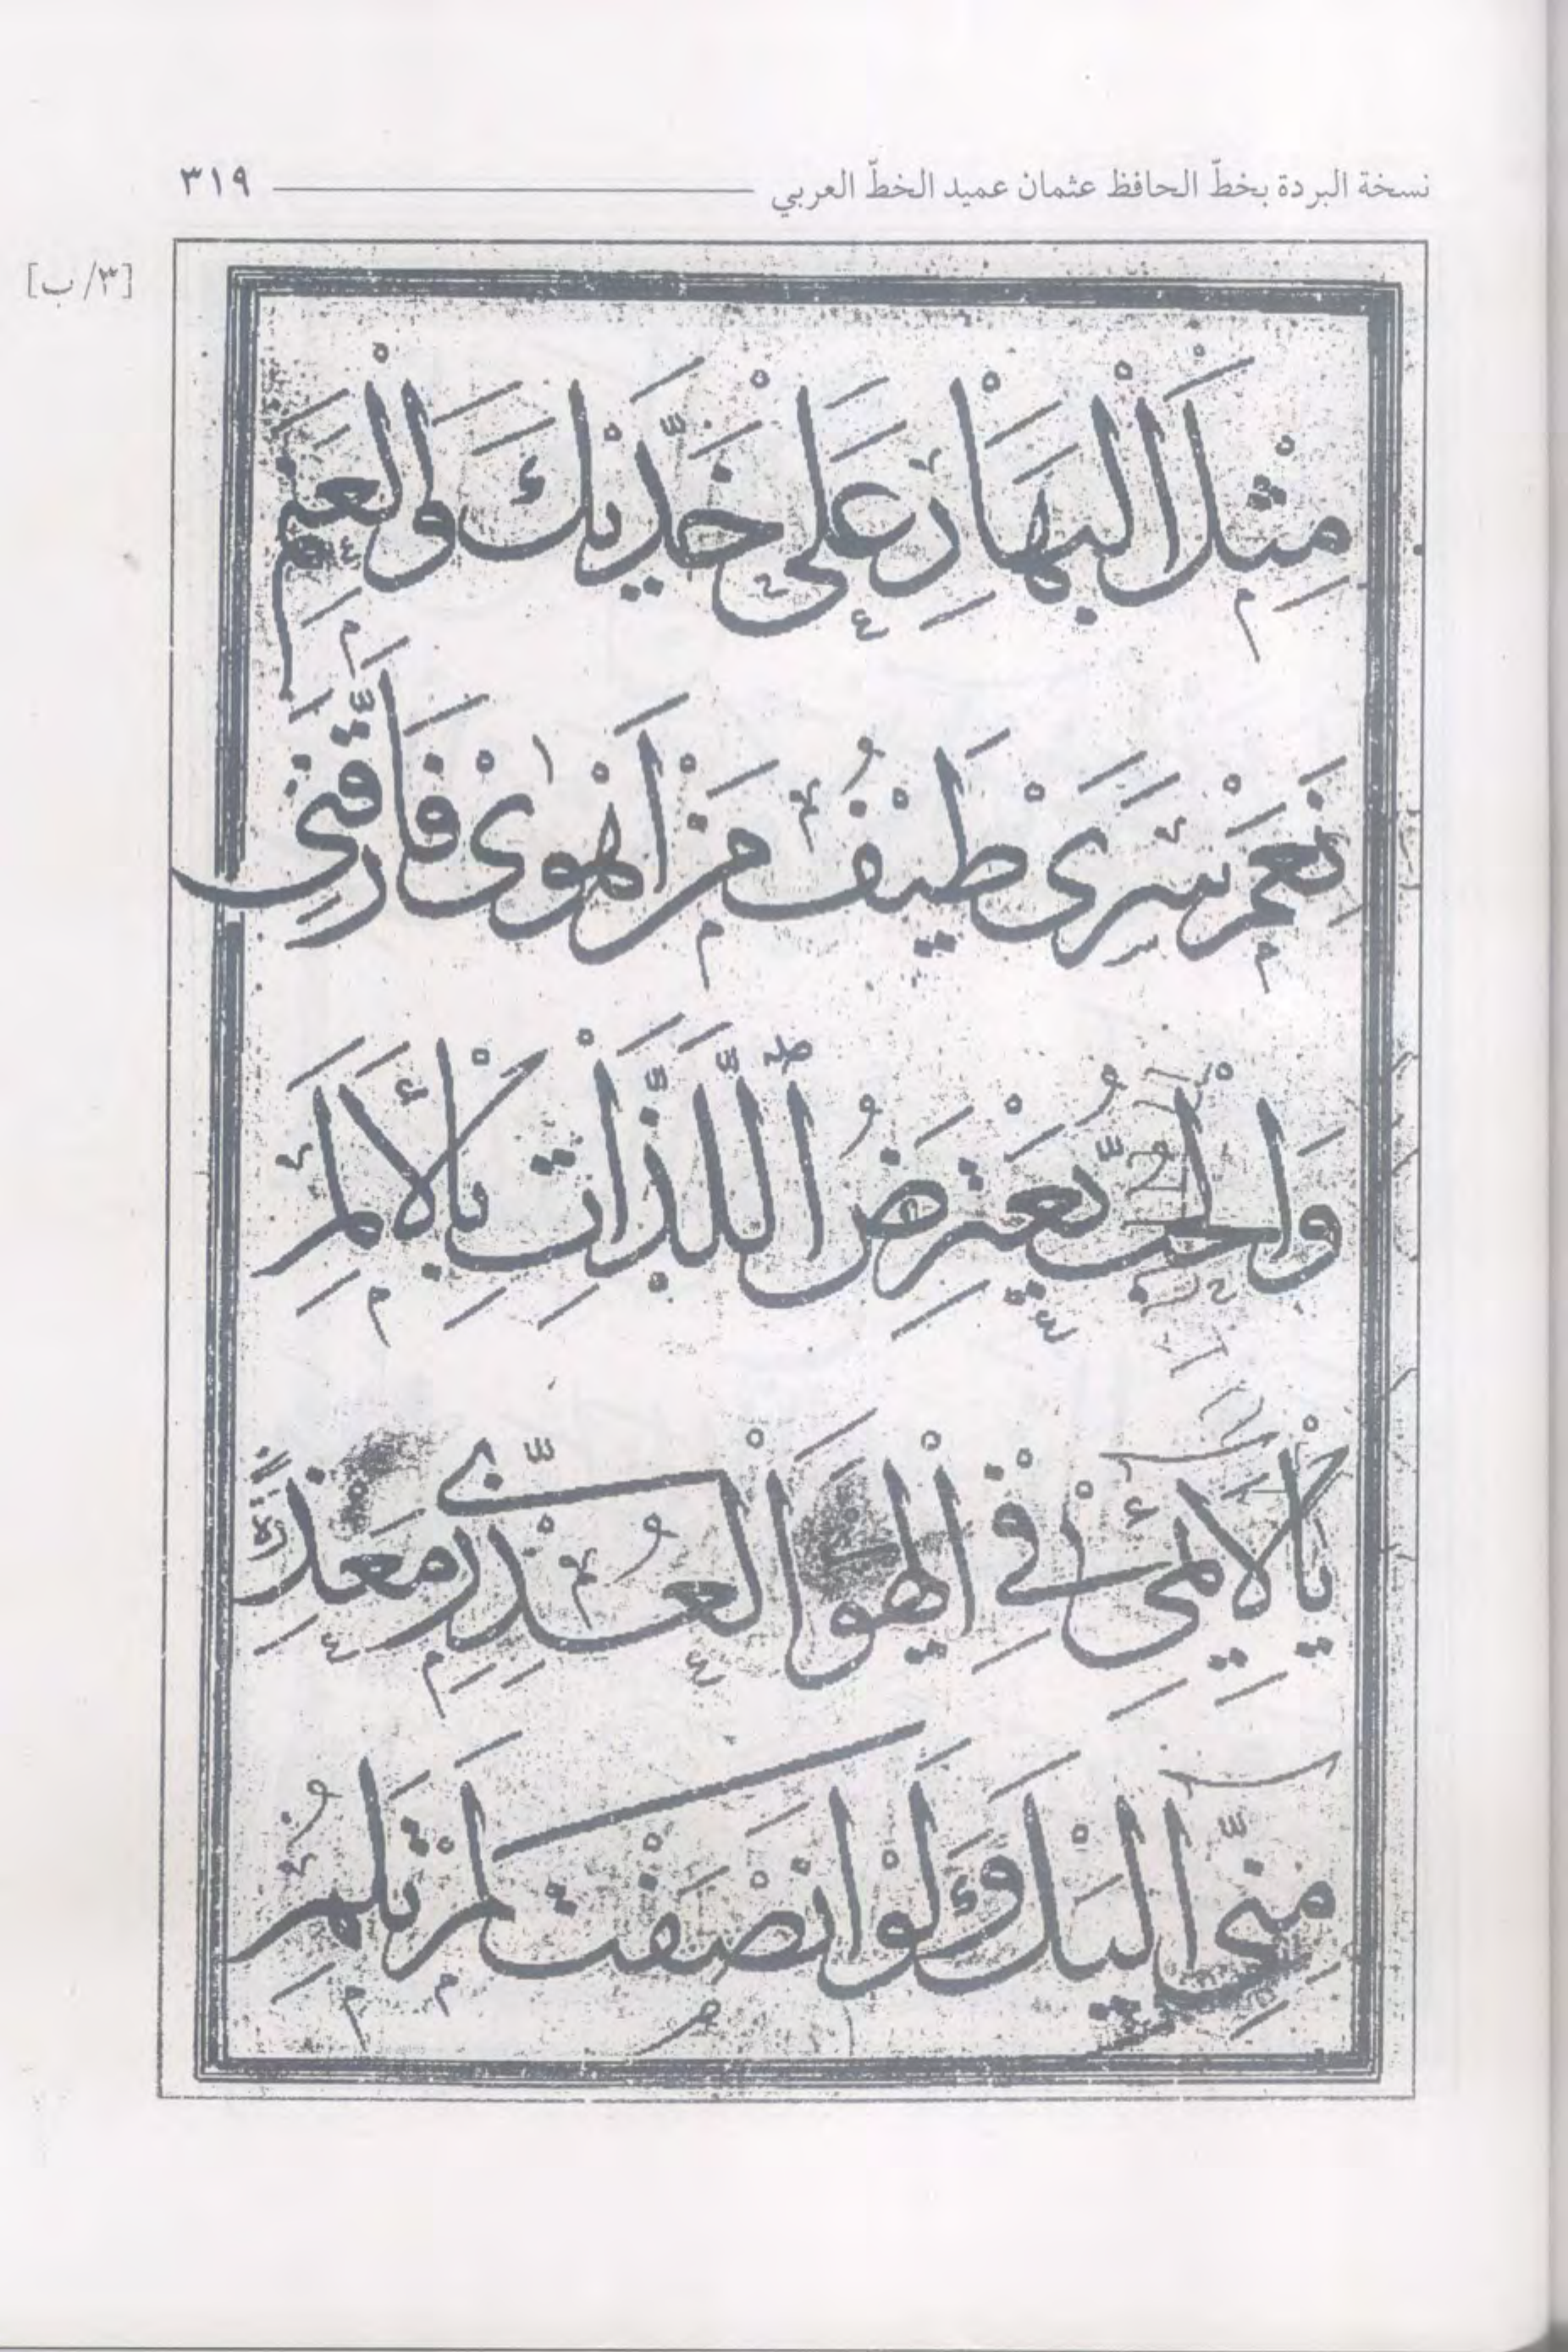 نسخة البردة بخطّ الحافظ عثمان عميد الخطّ العربي ٣١٩
[٣/ب]
مِثْلَ الْبَهَارِ عَلَى خَدَّيْكَ وَالْعَنَمِ
نَعَمْ سَرَى طَيْفُ مَنْ اَهْوٰى فَاَرَّقَنِى
وَالْحُبُّ يَعْتَرِضُ ٱللَّذَّاتِ بِالْأَلَمِ
يَا لَايِمِى فِى الْهَوَى الْعُذْرِىِّ مَعْذِرَةً
مِنِّى اِلَيْكَ وَلَوْ اَنْصَفْتَ لَمْ تَلُمِ